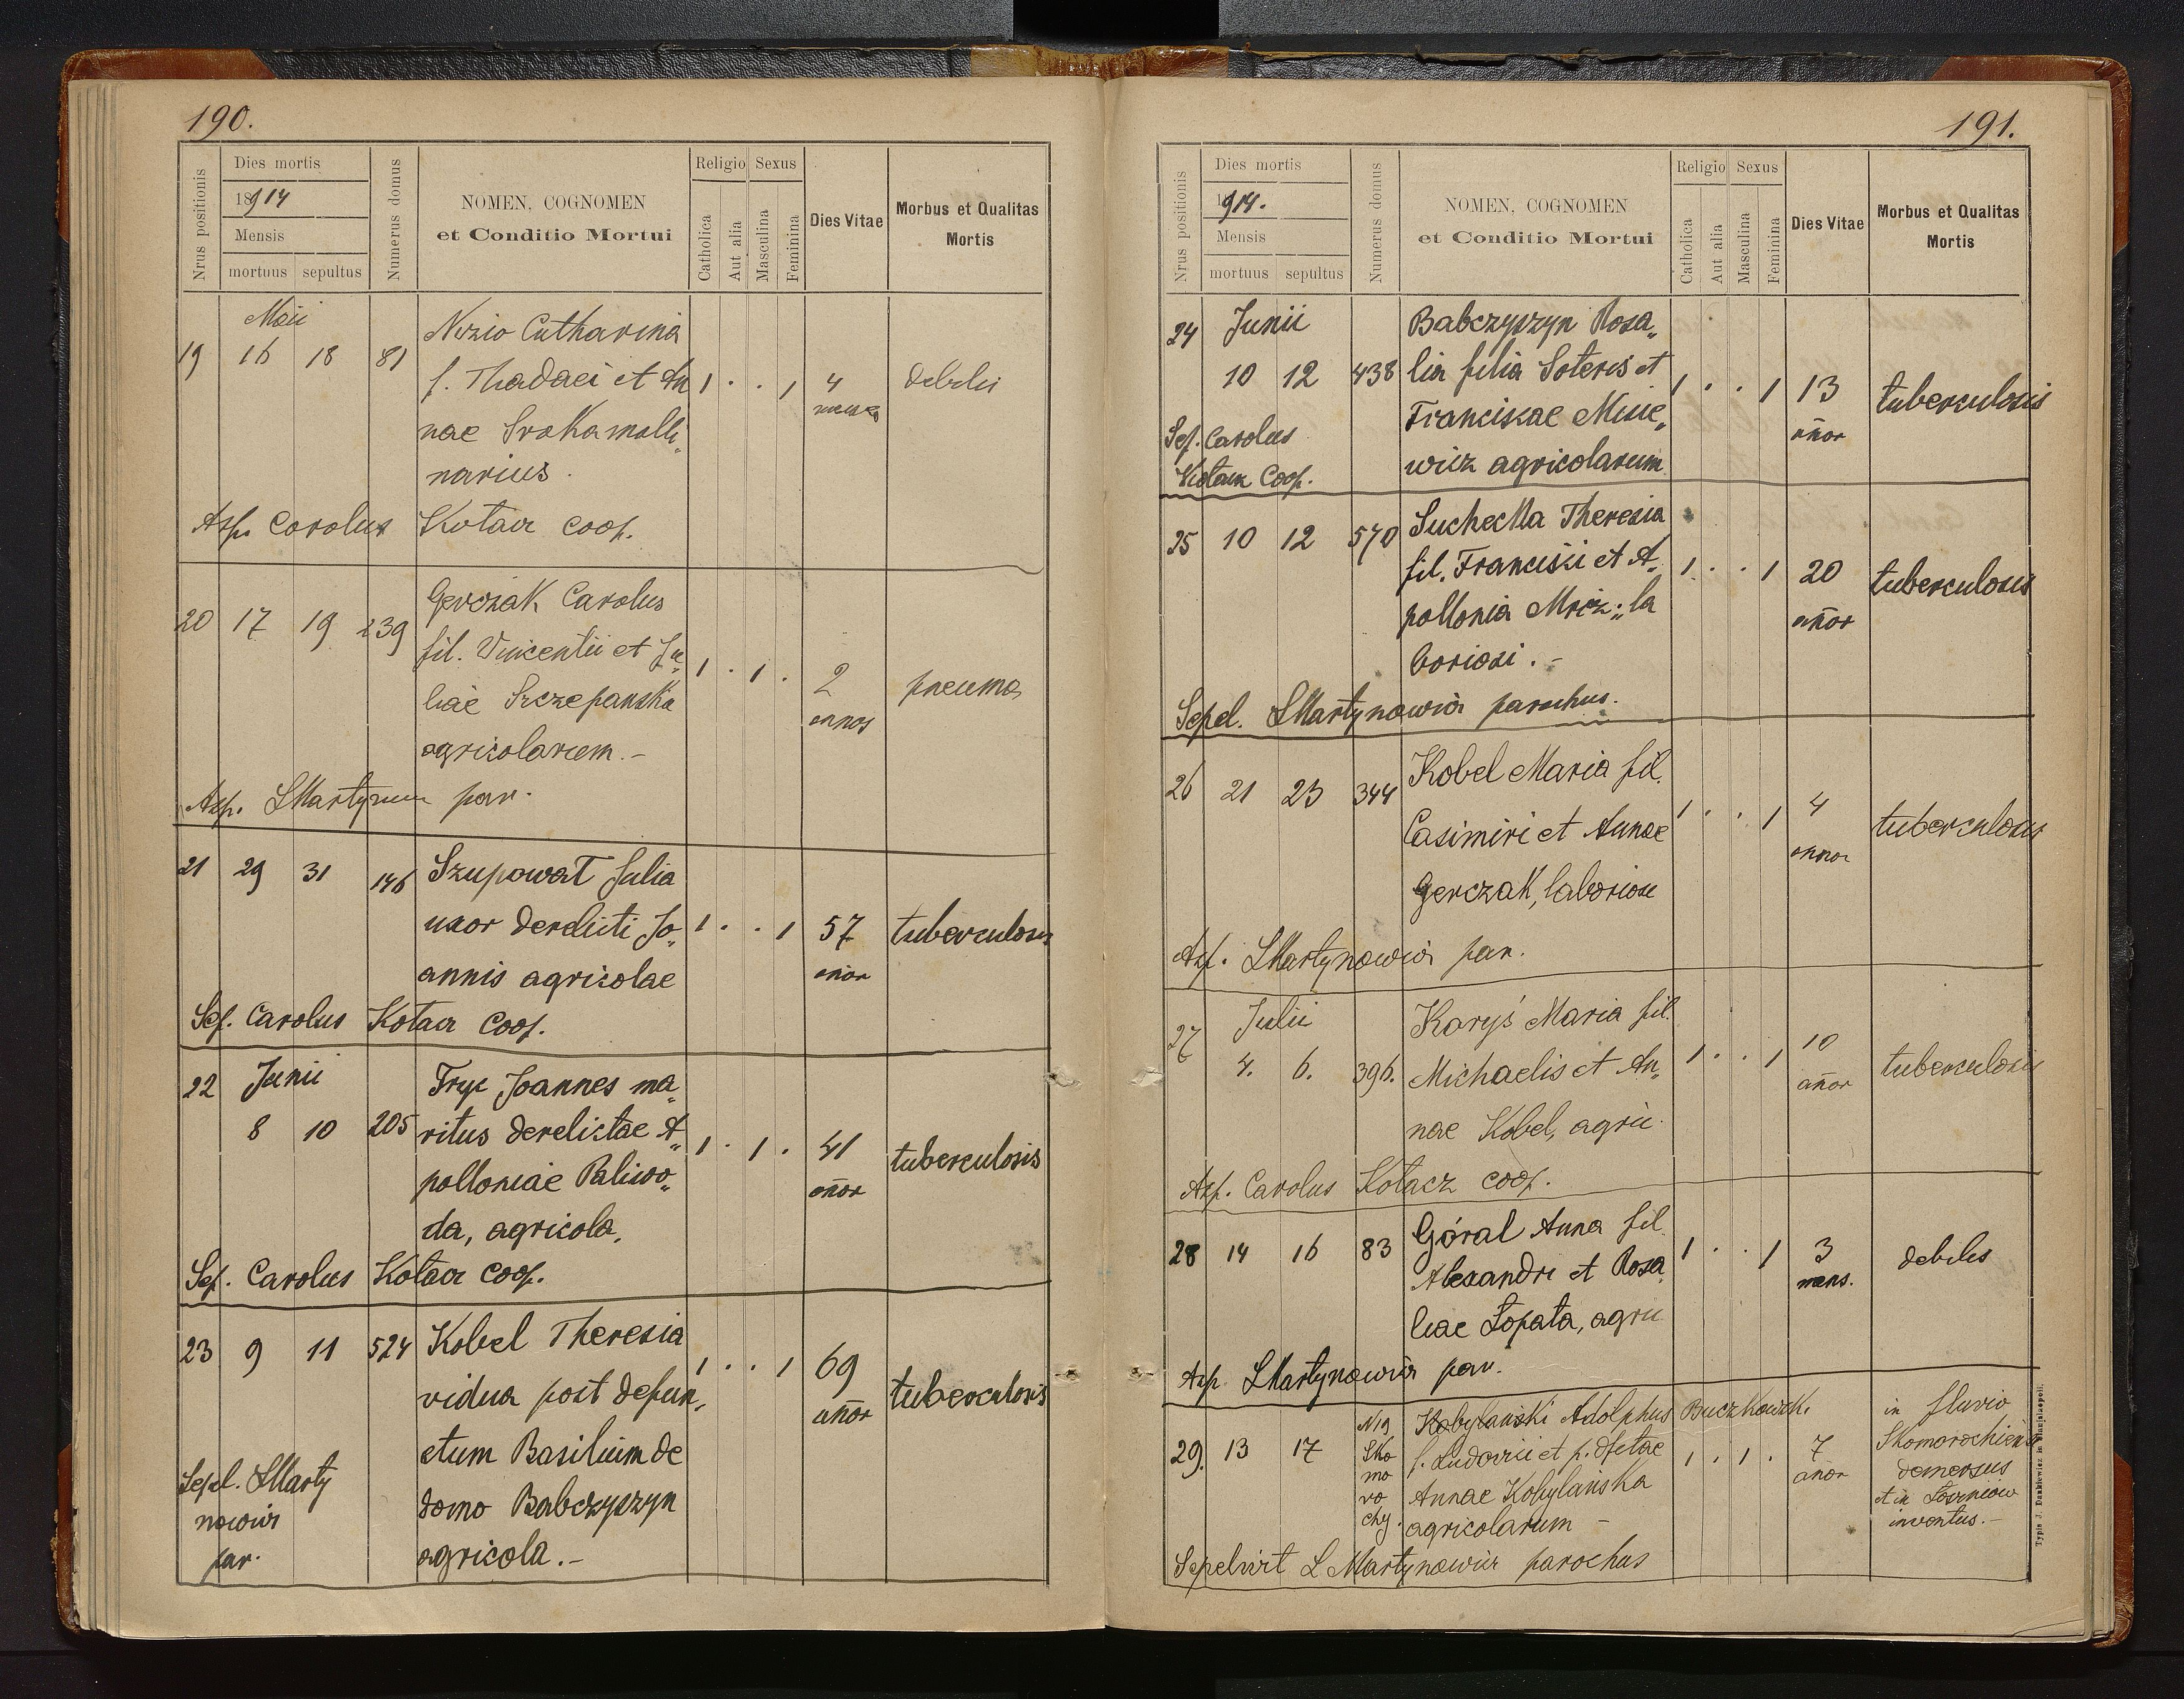 190.
Nrus positionis
Dies mortis
1914
Mensis
mortuus sepultus
Numerus domus
NOMEN, COGNOMEN
et Conditio Mortui
Religio
Catholica
Aut alia
Sexus
Masculina
Feminina
Dies Vitae
Morbus et Qualitas
Mortis
Maii
19 16 18 81
Catharina
f. Thadaei et An
nae
narius.
1 . . 1
4
debilis
Asp. Carolus Kotacz coop.
20 17 19 239
Gerczak Carolus
fil. Vincentii et Ju„
liae Szczepanska
agricolarum.-
1 . 1 .
2
annos
pneumo
Asp. par.
21 29 31 146
Szupowat Julia
uxor derelicti Jo„
annis agricolae
1 . . 1
57
añor
tuberculosis
Sep. Carolus Kotacz coop.
22 Junii
8 10 205
Fryc Joannes ma„
ritus derelictae A„
polloniae Paliwo„
da, agricola.
1 . 1 .
41
añor
tuberculosis
Sep. Carolus Kotacz coop.
23 9 11 524
Kobel Theresia
vidua post defun„
ctum Basilium de
domo Babczyszyn
agricola.-
1 . . 1
69
añor
tuberculosis
Sepel. LMarty
nowicz
par.
191.
Nrus positionis
Dies mortis
1914.
Mensis
mortuus sepultus
Numerus domus
NOMEN, COGNOMEN
et Conditio Mortui
Religio
Catholica
Aut alia
Sexus
Masculina
Feminina
Dies Vitae
Morbus et Qualitas
Mortis
24 Junii
10 12 438
Babczyszyn Rosa„
lia filia Soteris et
Franciskae Misie„
wicz agricolarum
1 . . 1
13
añor
tuberculosis
Sep. Carolus
Kotacz Coop.
25 10 12 570
Suchecka Theresia
fil. Franciski et A„
pollonia la
boriosi.-
1 . . 1
20
añor
tuberculosis
Sepel. LMartynowicz parochus.
26 21 23 344
Kobel Maria fil.
Casimiri et Annae
Gerczak, laboriosi
1 . . 1
4
annor
tuberculosis
Asp. LMartynowicz par.
27 Julii
4. 6. 396.
Karyś Maria fil.
Michaelis et An„
nae Kobel, agric.
1 . . 1
10
añor
tuberculosis
Asp. Carolus Kotacz coop.
28 14 16 83
Góral Anna fil
Alexandri et Rosa„
liae Łopata, agric
1 . . 1
3
mens.
debilis
Asp. LMartynowicz par.
29. 13 17
N19
Sko
mo
ro
chy.
Kobylański Adolphus Buczkowski
f. Ludovici et p. dfctae
Annae Kobylańska
agricolarum -
1 . 1 .
7
añor
in fluvio
Skomorochiensi
demersus
et in
inventus.-
Sepelivit L Martynowicz parochus
Typis J. Dankiewicz in Stanislaopoli.